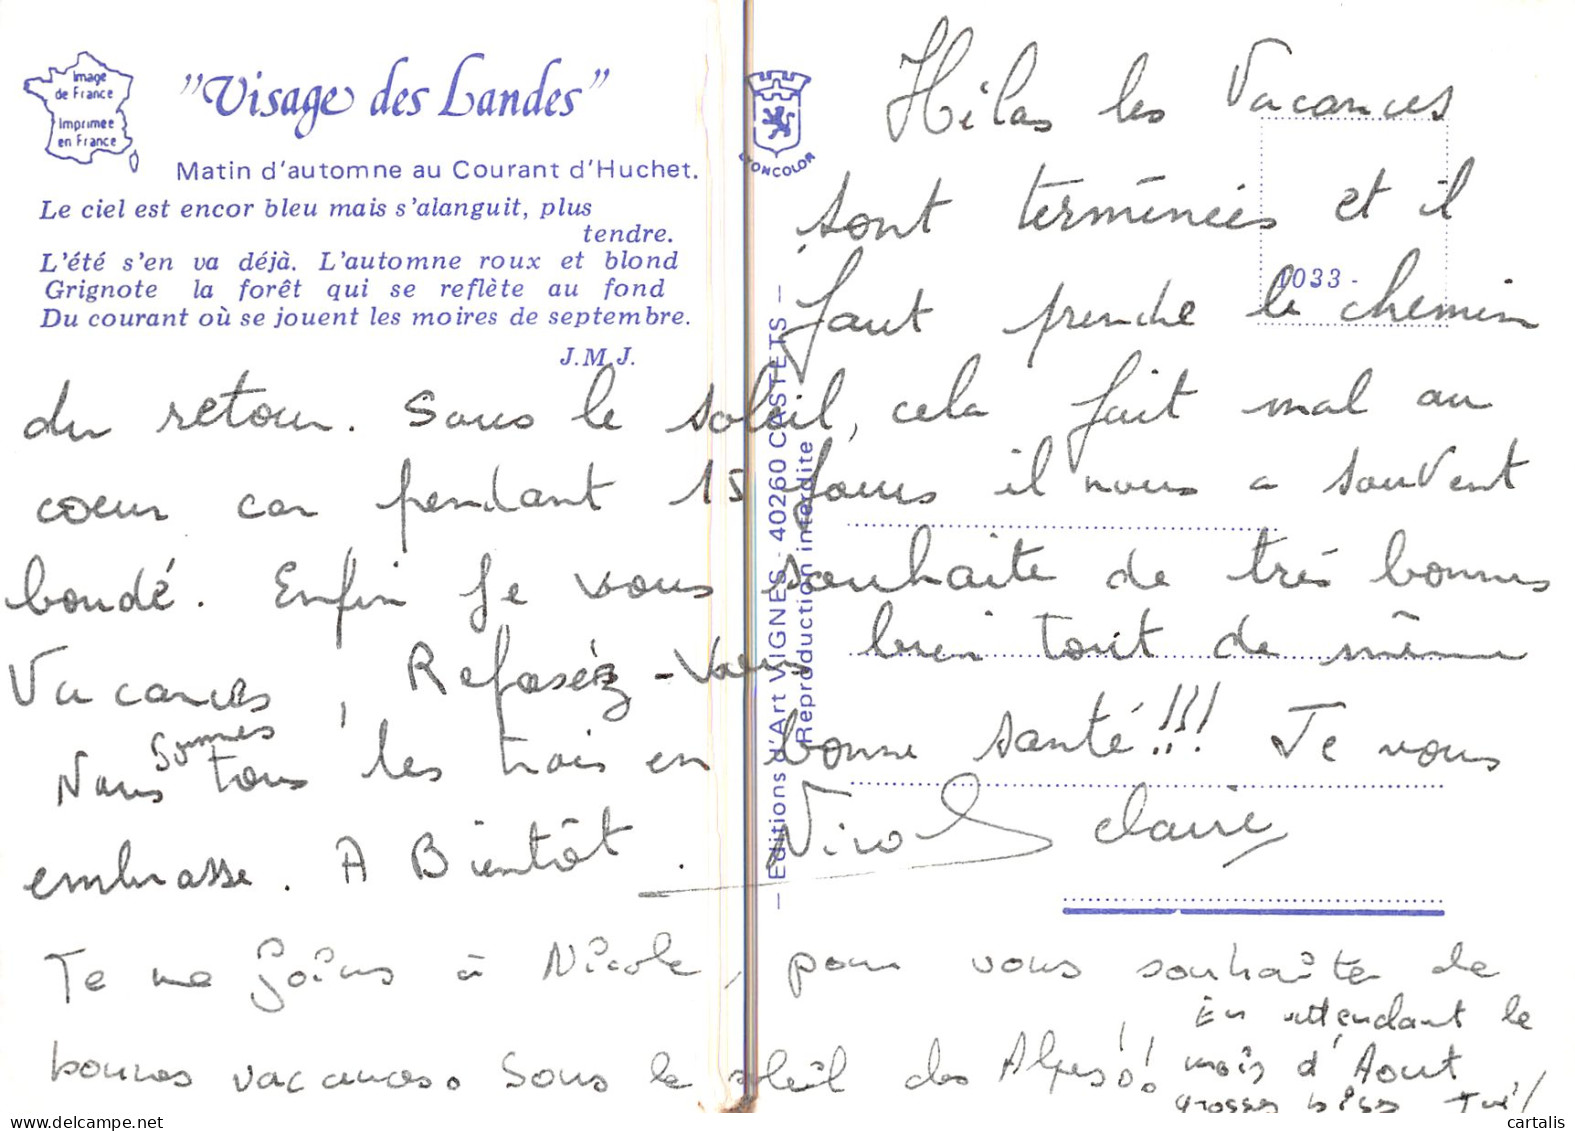 Image
de France
Imprimée
en France
"Visage des Landes"
Matin d'automne au Courant d'Huchet.
Le ciel est encor bleu mais s'alanguit, plus
tendre.
L'été s'en va déjà. L'automne roux et blond
Grignote la forêt qui se reflète au fond
Du courant où se jouent les moires de septembre.
J.M.J.
LYONCOLOR
1033 -
— Editions d'Art VIGNES - 40260 CASTETS —
Reproduction interdite
Hélas les Vacances
sont terminées et il
faut prendre le chemin
du retour. Sous le soleil, cela fait mal au
coeur car pendant 15 jours il nous a souvent
boudé. Enfin je vous souhaite de très bonnes
Vacances, Reposéz-Vous bien tout de même
Nous sommes tous les trois en bonne santé!!! Je vous
embrasse. A Bientôt. Nicole Claire
Je me joins à Nicole, pour vous souhaîter de
bonnes vacances. Sous le soleil des Alpes!!
En attendant le
mois d'Aout
grosses bises
cartalis
https://www.delcampe.net